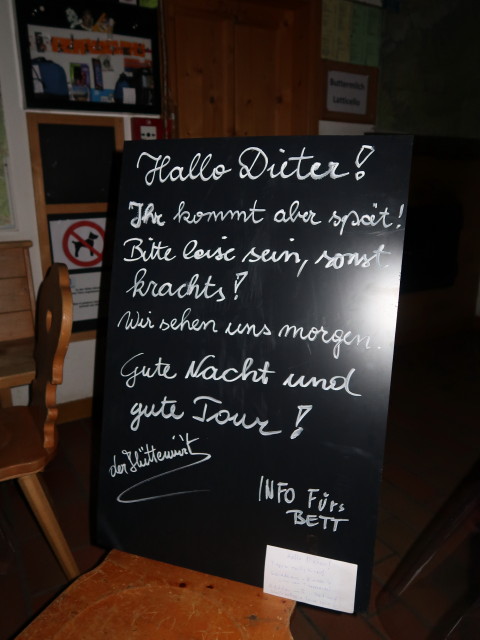 Buttermilch
Latticello
Hallo Dieter!
Ihr kommt aber spät!
Bitte leise sein, sonst
krachts!
Wir sehen uns morgen.
Gute Nacht und
gute Tour!
der Hüttenwirt
INFO Fürs
BETT